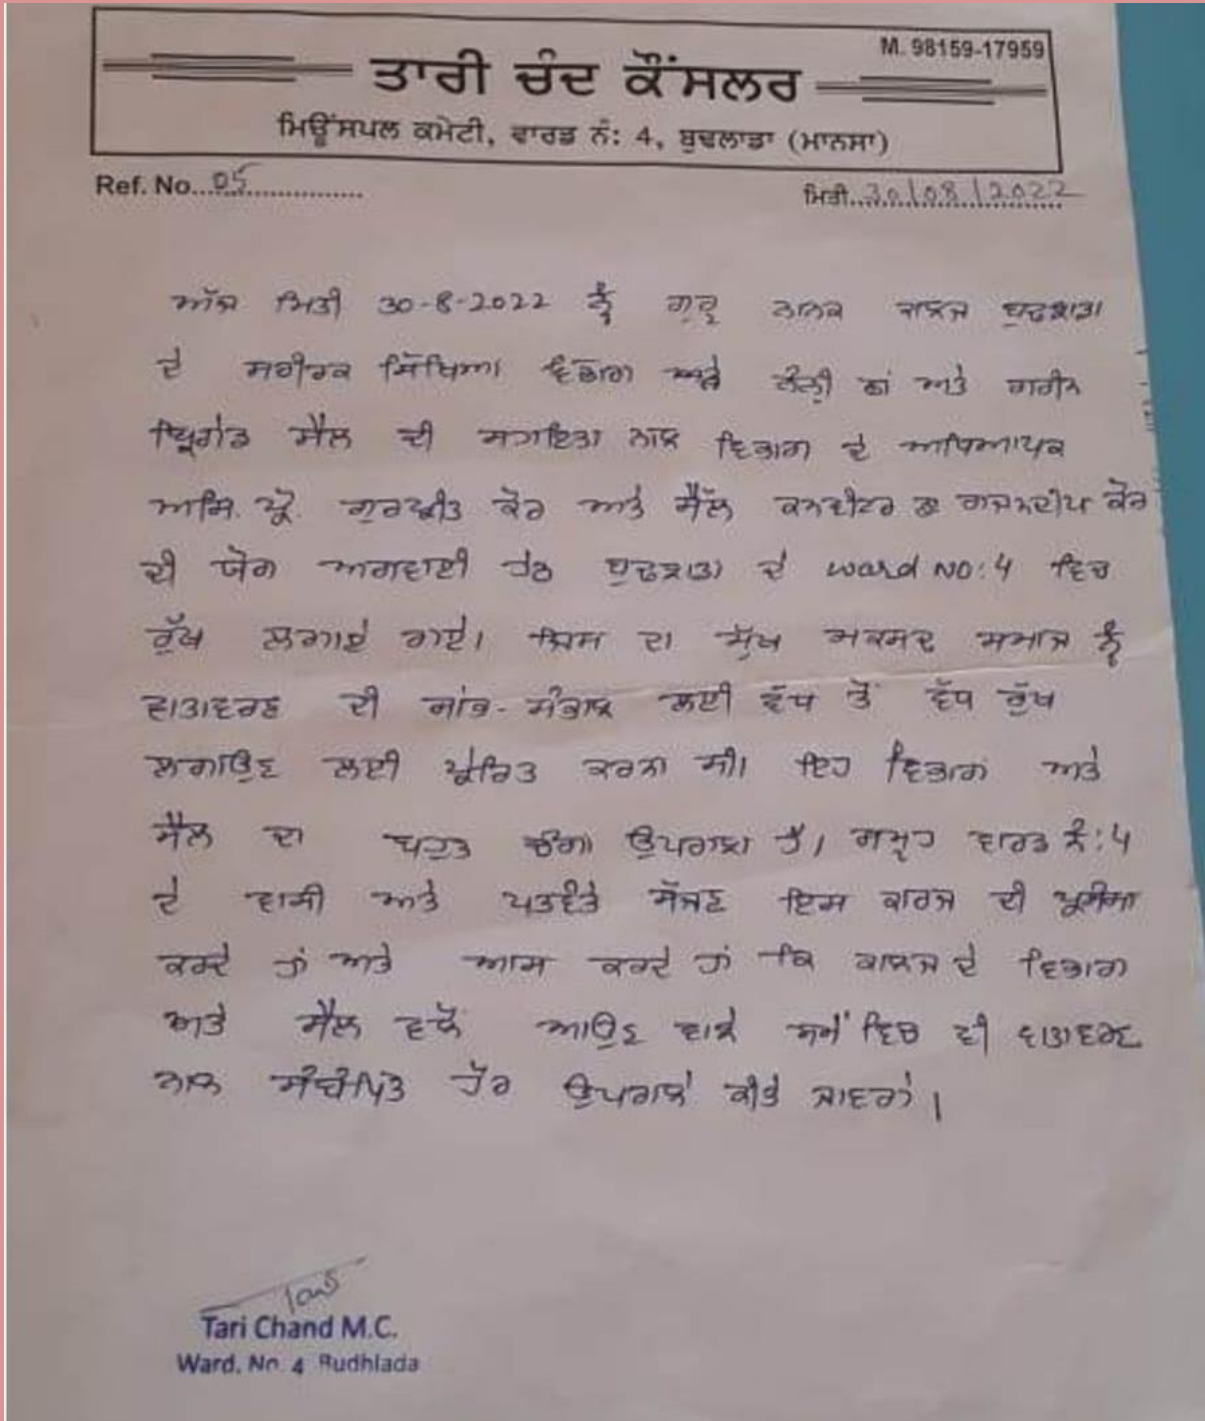 M. 98159-17959
ਤਾਰੀ ਚੰਦ ਕੌਂਸਲਰ
ਮਿਊਂਸਪਲ ਕਮੇਟੀ, ਵਾਰਡ ਨੰ: 4, ਬੁਢਲਾਡਾ (ਮਾਨਸਾ)
Ref. No. 05
ਮਿਤੀ 30/08/2022
ਅੱਜ ਮਿਤੀ 30-8-2022 ਨੂੰ ਗੁਰੂ ਨਾਨਕ ਕਾਲਜ ਬੁਢਲਾਡਾ
ਦੇ ਸਰੀਰਕ ਸਿੱਖਿਆ ਵਿਭਾਗ ਅਤੇ ਅਤੇ ਗਰੀਨ
ਬ੍ਰਿਗੇਡ ਸੈੱਲ ਦੀ ਸਹਾਇਤਾ ਨਾਲ ਵਿਭਾਗ ਦੇ ਅਧਿਆਪਕ
ਅਸਿ. ਪ੍ਰੋ. ਗੁਰਪ੍ਰੀਤ ਕੌਰ ਅਤੇ ਸੈੱਲ ਕਨਵੀਨਰ ਡਾ ਕੌਰ
ਦੀ ਯੋਗ ਅਗਵਾਈ ਹੇਠ ਬੁਢਲਾਡਾ ਦੇ ward NO:4 ਵਿਚ
ਰੁੱਖ ਲਗਾਏ ਗਏ। ਜਿਸ ਦਾ ਮੁੱਖ ਮਕਸਦ ਸਮਾਜ ਨੂੰ
ਵਾਤਾਵਰਣ ਦੀ ਸਾਂਭ-ਸੰਭਾਲ ਲਈ ਵੱਧ ਤੋਂ ਵੱਧ ਰੁੱਖ
ਲਗਾਉਣ ਲਈ ਪ੍ਰੇਰਿਤ ਕਰਨਾ ਸੀ। ਇਹ ਵਿਭਾਗ ਅਤੇ
ਸੈੱਲ ਦਾ ਬਹੁਤ ਚੰਗਾ ਉਪਰਾਲਾ ਹੈ। ਸਮੂਹ ਵਾਰਡ ਨੰ:4
ਦੇ ਵਾਸੀ ਅਤੇ ਪਤਵੰਤੇ ਸੱਜਣ ਇਸ ਕਾਰਜ ਦੀ ਪ੍ਰਸੰਸਾ
ਕਰਦੇ ਹਾਂ ਅਤੇ ਆਸ ਕਰਦੇ ਹਾਂ ਕਿ ਕਾਲਜ ਦੇ ਵਿਭਾਗ
ਅਤੇ ਸੈੱਲ ਵਲੋਂ ਆਉਣ ਵਾਲੇ ਸਮੇਂ ਵਿਚ ਵੀ ਵਾਤਾਵਰਣ
ਨਾਲ ਸੰਬੰਧਿਤ ਹੋਰ ਉਪਰਾਲੇ ਕੀਤੇ ਜਾਣਗੇ।
Tari Chand M.C.
Ward. No. 4 Budhlada